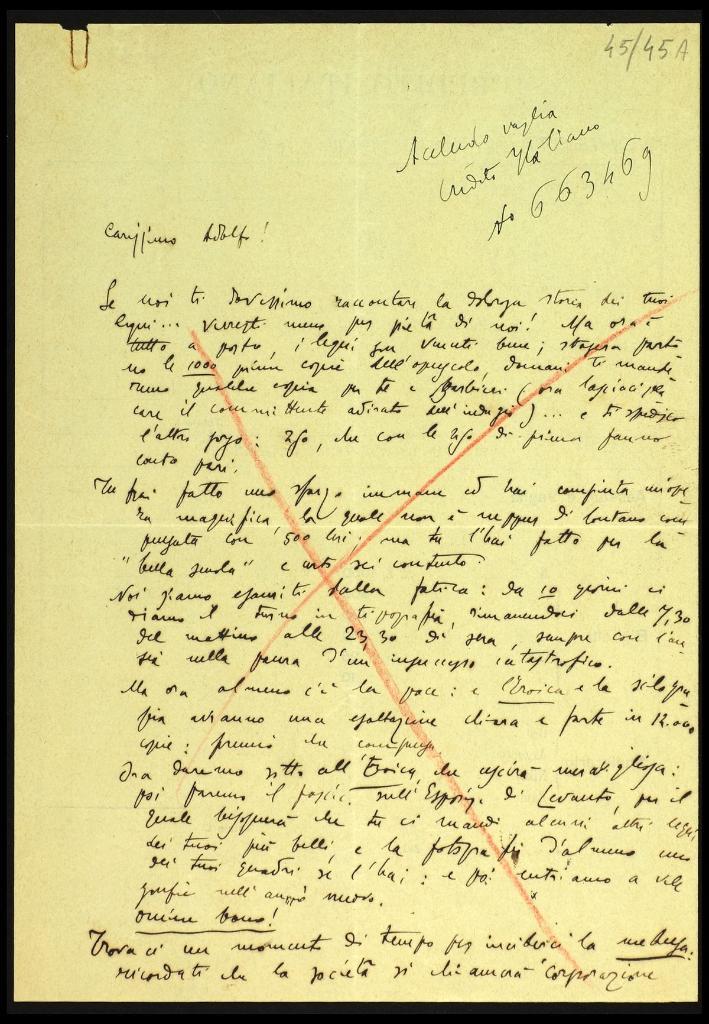 45/45A
Accludo vaglia
Credito Italiano
No 663469
Carissimo Adolfo!
Se noi ti dovessimo raccontare la dolorosa storia dei tuoi
legni... verresti meno per pietà di noi! Ma ora è
tutto a posto, i legni son venuti bene; stasera parto
no le 1000 prime copie dell'opuscolo, domani ti mande
remo qualche copia per te e Barbieri (ora lasciaci pla
care il committente adirato dell'indugio)... e ti spedisco
l'altro : 250, che con le 250 di prima fanno
conto pari.
Tu hai fatto uno sforzo immane ed hai compiuta un'ope
ra magnifica la quale non è neppur di lontano com
pensata con 500 lire; ma tu l'hai fatto per la
"bella scuola" e certo sei contento.
Noi siamo esauriti dalla fatica: da 10 giorni ci
diamo il turno in tipografia, rimanendoci dalle 7,30
del mattino alle 23,30 di sera, sempre con l'an
sia nella paura d'un insuccesso catastrofico.
Ma ora almeno c'è la pace: e l'Eroica e la silogra
fia avranno una esaltazione chiara e forte in 12.000
copie: premio che compensa.
Ora daremo sotto all'Eroica, che uscirà meravigliosa:
poi faremo il fascic. sull'Esposiz. di Levanto, per il
quale bisognerà che tu ci mandi alcuni altri legni
dei tuoi più belli, e la fotografia d'almeno uno
dei tuoi quadri se l'hai: e poi entriamo a vele
gonfie nell'anno nuovo.
omine bono!
Trovaci un momento di tempo per inciderci la medusa:
ricordati che la società si chiamerà "Corporazione